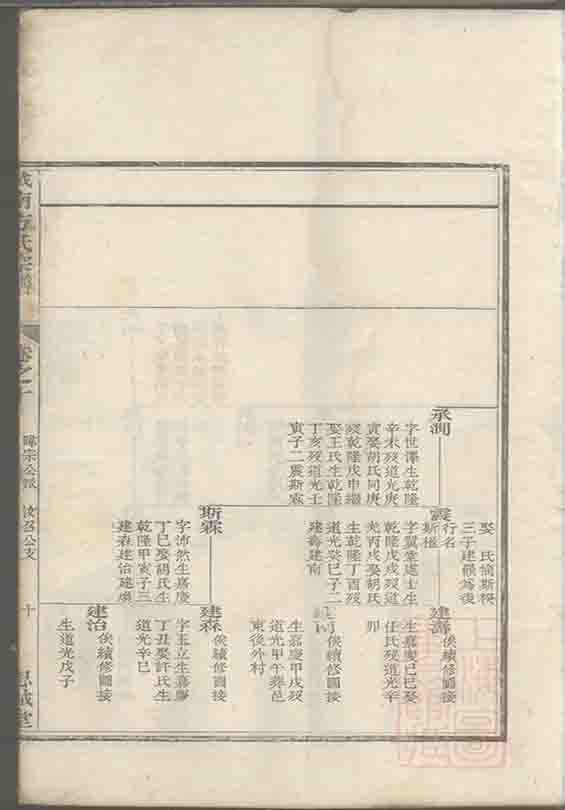 承潤
字世澤生乾隆
辛未歿道光庚
寅娶胡氏同庚
歿乾隆戊申繼
娶王氏生乾隆
丁亥歿道光壬
寅子二震斯霖
娶 氏
三子建
行名
斯
震
字翼堂處士生
乾隆戊戌歿道
光丙戌娶胡氏
生乾隆丁酉歿
道光癸巳子二
建壽建南
斯霖
字沛然生嘉慶
丁巳娶胡氏生
乾隆甲寅子三
建森建治建煥
建壽
俟續修圖接
生嘉慶己巳娶
任氏歿道光辛
卯
俟續修圖接
生嘉慶甲戌歿
道光甲午葬邑
東後外村
建森
俟續修圖接
字玉立生嘉慶
丁丑娶許氏生
道光辛巳
建治
俟續修圖接
生道光戊子
氏宗譜
卷之
公派
公支
十